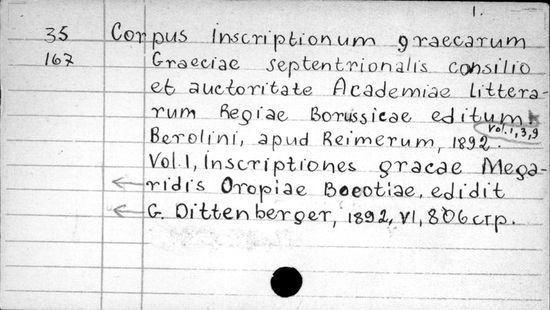 1.
35 Corpus inscriptionum graecarum
167 Graeciae septentrionalis consilio
et auctoritate Academiae littera-
rum Regiae Borussicae editum
Vol. 1, 3, 9
Berolini, apud Reimerum, 1892.
Vol. 1, Inscriptiones gracae Mega-
ridis Oropiae Boeotiae, edidit
G. Dittenberger, 1892, VI, 806 стр.